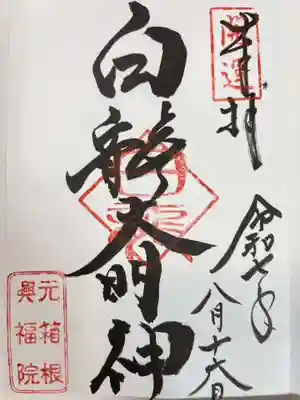 奉拝
開運
令和七年
八月十六日
白龍大明神
元箱根
興福院